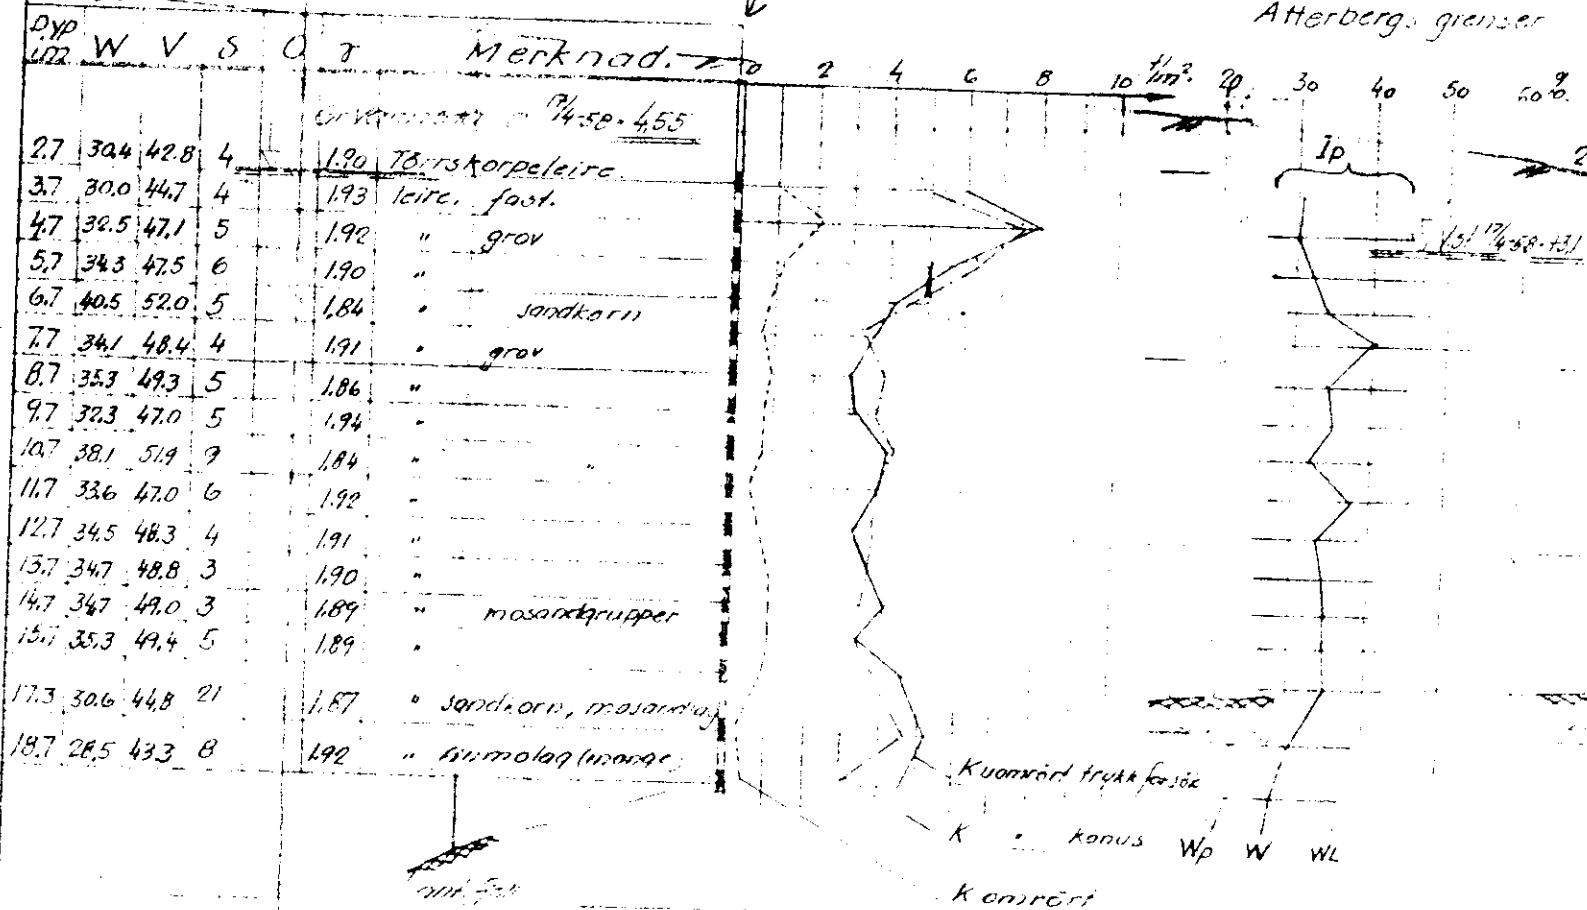 Atterbergs grenser
Dyp i m W V S O γ Merknad.
0 2 4 6 8 10 t/m². 20 30 40 50 60 %
17/4-58 - 4,55
2.7 30.4 42.8 4 1.90 Tørrskorpeleire
Ip
3.7 30.0 44.7 4 1.93 leire. fast.
4.7 32.5 47.1 5 1.92 " grov
17/4-58
5.7 34.3 47.5 6 1.90 "
6.7 40.5 52.0 5 1.84 " sandkorn
7.7 34.1 48.4 4 1.91 " grov
8.7 35.3 49.3 5 1.86 "
9.7 32.3 47.0 5 1.94 "
10.7 38.1 51.9 9 1.84 " "
11.7 33.6 47.0 6 1.92 "
12.7 34.5 48.3 4 1.91 "
13.7 34.7 48.8 3 1.90 "
14.7 34.7 49.0 3 1.89 " mosandgrupper
15.7 35.3 49.4 5 1.89 "
17.3 30.6 44.8 21 1.87 " sandkorn, mosandlag
18.7 28.5 43.3 8 1.92 " finmolag (mange)
K uomrört trykkforsök
K " konus Wp W WL
K omrört